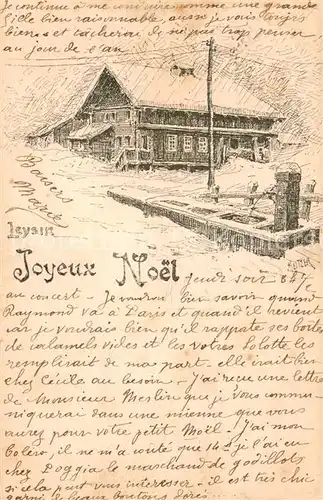 Je continue à me conduire comme une grande
fille bien raisonnable, aussi je vais toujrs
bien et tacherai de ne pas trop penser
au jour de l'an
Baisers
Marie
Leysin
Joyeux Noël
Jeudi soir 8 h
au concert - Je voudrai bien savoir quand
Raymond va à Paris et quand il revient
car je voudrais bien qu'il rapporte ses boites
de calamels vides et les votres Lolotte les
remplirait de ma part - elle irait bien
chez Cécile au besoin - J'ai reçu une lettre
de Monsieur Meslin que je vous commu-
niquerai dans une mienne que vous
aurez pour votre petit Noël - J'ai mon
boléro, il ne m'a couté que 14 je l'ai eu
chez Doggia le marchand de godillots
si cela peut vous interesser - il est très chic
garni de beaux boutons dorés